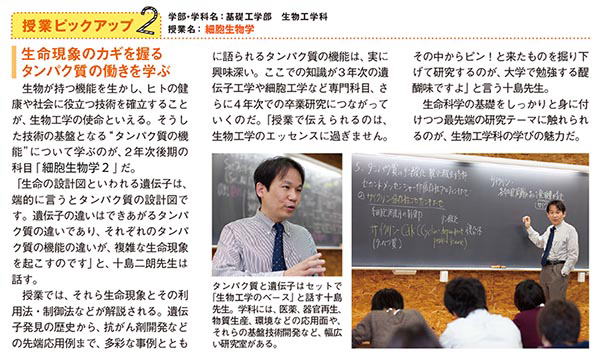 授業ピックアップ2
学部・学科名：基礎工学部　生物工学科
授業名：細胞生物学
生命現象のカギを握る
タンパク質の働きを学ぶ
　生物が持つ機能を生かし、ヒトの健
康や社会に役立つ技術を確立すること
が、生物工学の使命といえる。そうし
た技術の基盤となる“タンパク質の機
能”について学ぶのが、2年次後期の
科目「細胞生物学2」だ。
「生命の設計図といわれる遺伝子は、
端的に言うとタンパク質の設計図で
す。遺伝子の違いはできあがるタンパ
ク質の違いであり、それぞれのタンパ
ク質の機能の違いが、複雑な生命現象
を起こすのです」と、十島二朗先生は
話す。
　授業では、それら生命現象とその利
用法・制御法などが解説される。遺伝
子発見の歴史から、抗がん剤開発など
の先端応用例まで、多彩な事例ととも
に語られるタンパク質の機能は、実に
興味深い。「ここでの知識が3年次の遺
伝子工学や細胞工学など専門科目、さ
らに4年次での卒業研究につながって
いくのだ。「授業で伝えられるのは、
生物工学のエッセンスに過ぎません。
その中からピン！と来たものを掘り下
げて研究するのが、大学で勉強する醍
醐味ですよ」と言う十島先生。
　生命科学の基礎をしっかりと身に付
けつつ最先端の研究テーマに触れられ
るのが、生物工学科の学びの魅力だ。
タンパク質と遺伝子はセットで
「生物工学のベース」と話す十島
先生。学科には、医薬、器官再生、
物質生産、環境などの応用面や、
それらの基盤技術開発など、幅広
い研究室がある。